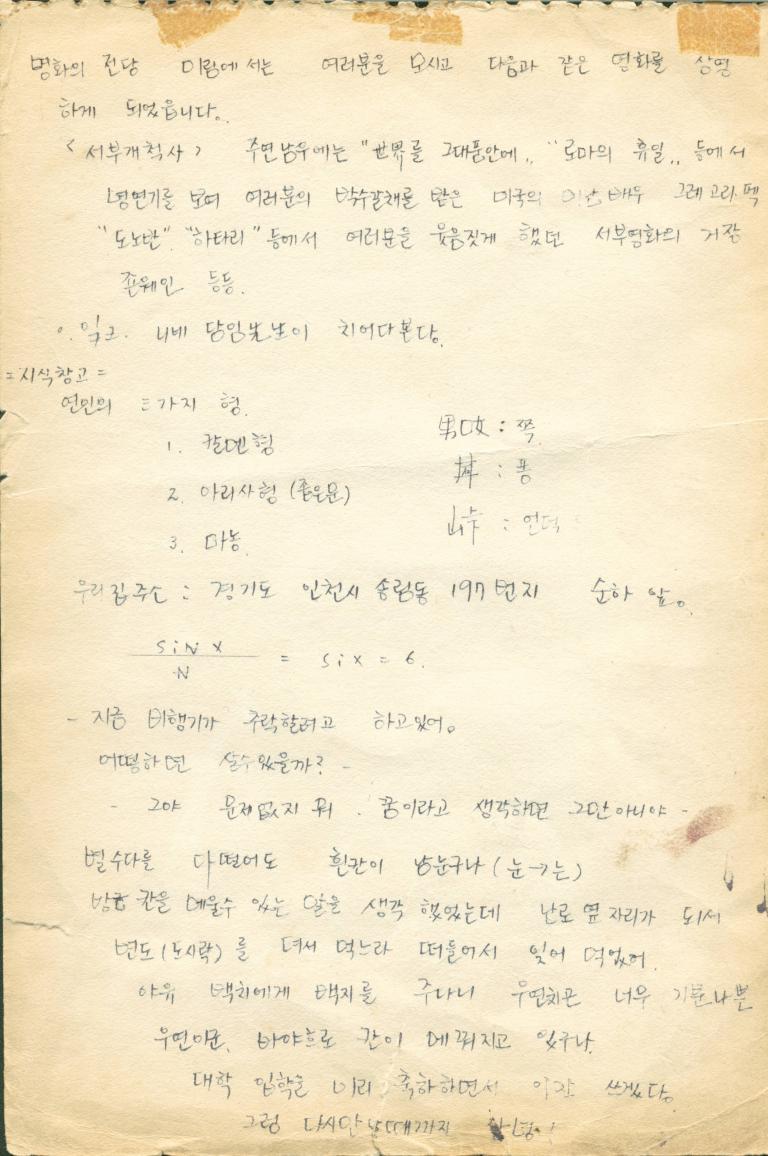 명화의 전당 미림에서는 여러분을 모시고 다음과 같은 영화를 상영
하게 되었읍니다.
<서부개척사> 주연남우에는 "世界를 그대품안에„ "로마의 휴일„ 등에서
명연기를 보여 여러분의 박수갈채를 받은 미국의 미남배우 그레고리.펙
"도노반" "하타리" 등에서 여러분을 웃음짓게 했던 서부영화의 거장
죤웨인 등등.
니네 담임先生이 치어다본다.
=지식창고=
연인의 三가지 형.
1. 칼멘형
男口女 : 쪽
2. 아리사형 (좁은문)
: 퐁
3. 마농
: 언덕
우리집주소 : 경기도 인천시 송림동 197번지 순하 앞.
siN x / N = six = 6.
- 지금 비행기가 추락할려고 하고있어.
어떻하면 살수있을까? -
- 그야 문제없지 뭐. 꿈이라고 생각하면 그만아니야 -
별수다를 다떨어도 흰칸이 남눈구나 (눈→는)
방금 칸을 메울수 있는 말을 생각 했었는데 난로 옆자리가 되서
변도(도시락)를 뎌서 먹느라 떠들어서 잊어 먹었어.
야유 백치에게 백지를 주다니 우연치곤 너무 기분나쁜
우연이군. 바야흐로 칸이 메꿔지고 있구나.
대학 입학을 미리 축하하면서 이만 쓰겠다.
그럼 다시만날때까지 안녕!